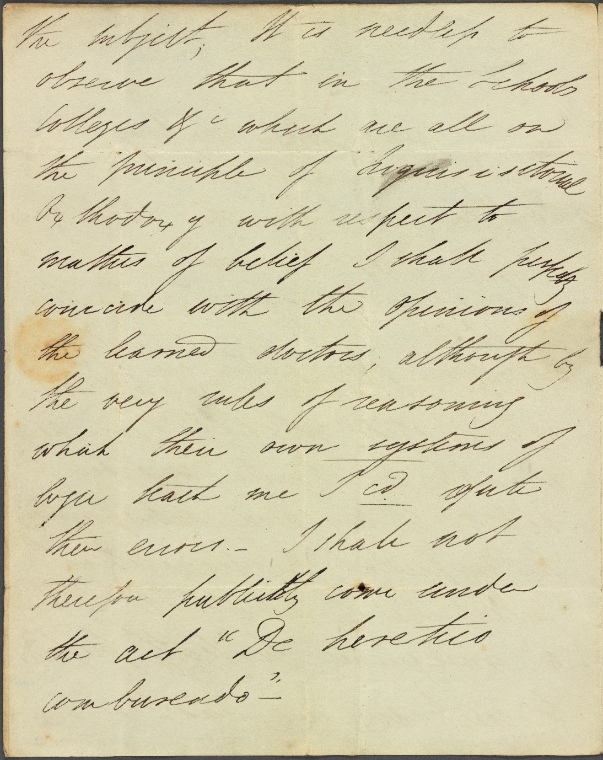 the subject, It is needless to
observe that in the Schools
Colleges &c which are all on
the principle of Inquisitorial
Orthodoxy with respect to
matters of belief I shall perfectly
coincide with the opinions of
the learned doctors, although by
the very rules of reasoning
what their own systems of
logic teach me I cd. refute
their errors. — I shall not
therefore publickly come under
the act "De heretico
comburendo" —